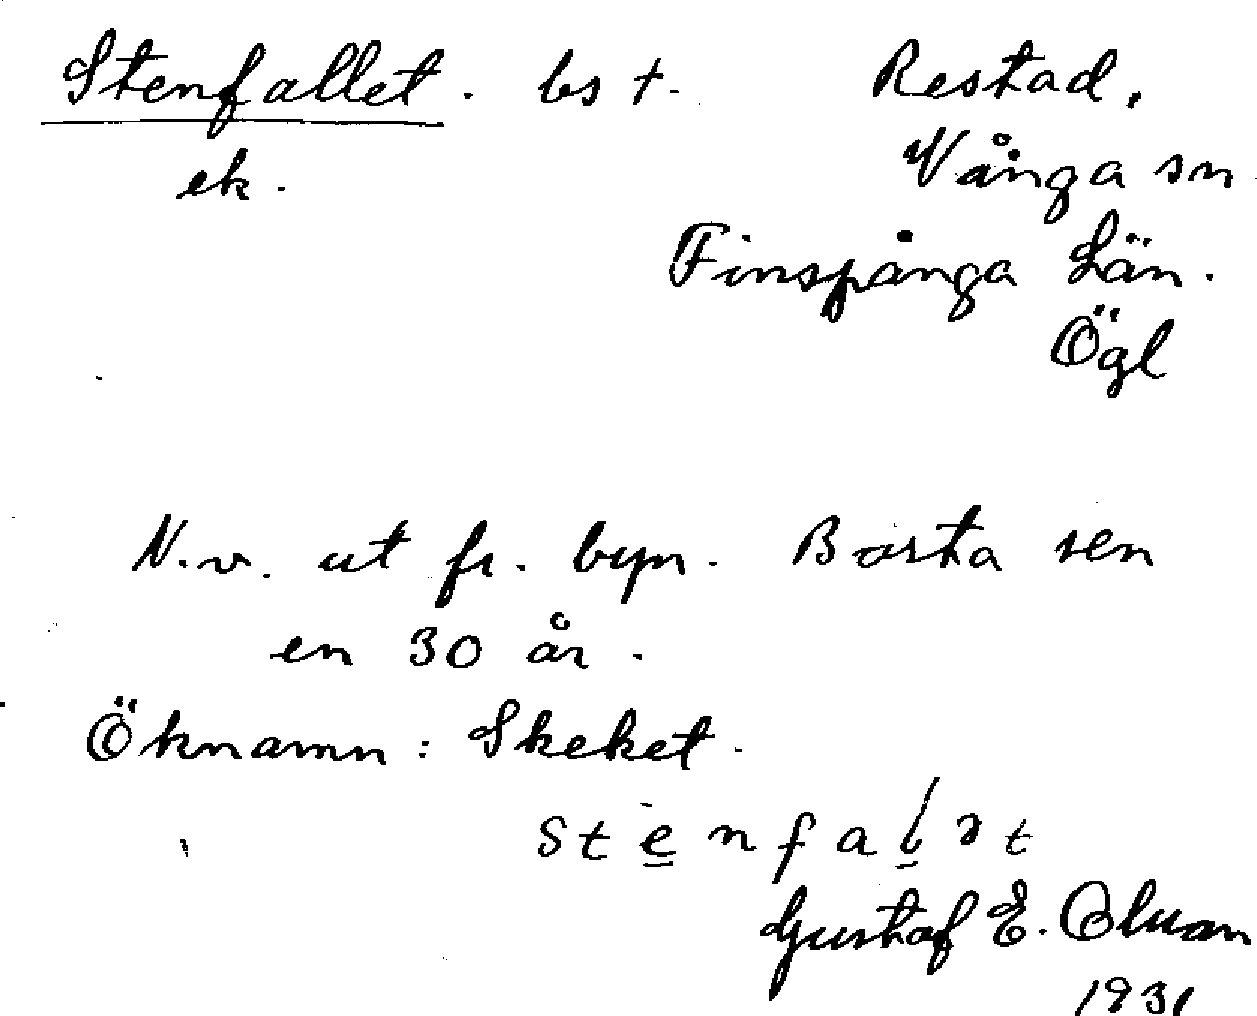 Stenfallet. bs t. Restad,
ek. Vånga sn
Finspånga Län.
Ögl
N.v. ut fr. byn. Borta sen
en 30 år.
Öknamn: Skeket.
stenfalət
Gustaf E.
1931